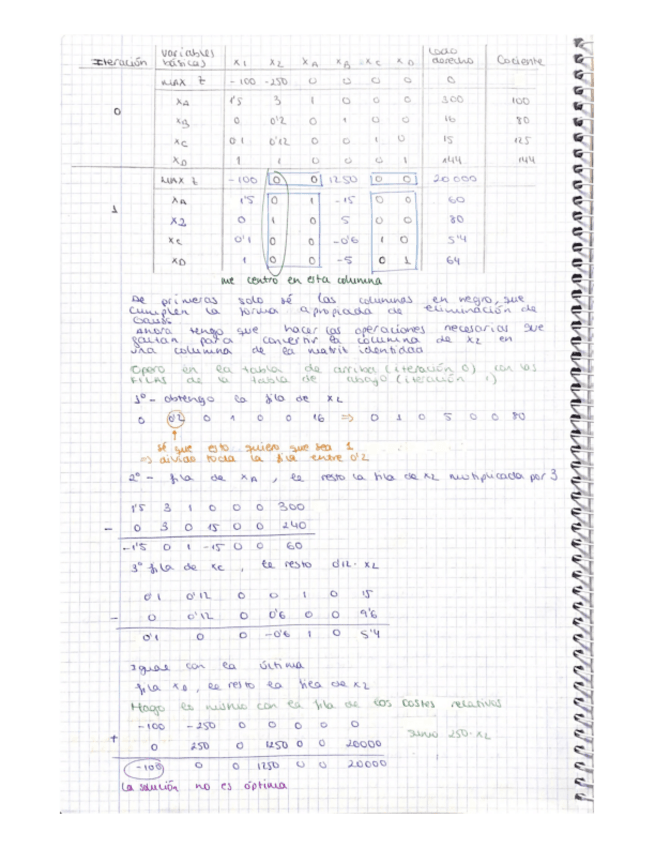 Iteración variables básicas x1 x2 xA xB xC xD Lado derecho Cociente
max z -100 -250 0 0 0 0 0
0 xA 1'5 3 1 0 0 0 300 100
xB 0 0'2 0 1 0 0 16 80
xC 0'1 0'12 0 0 1 0 15 125
xD 1 1 0 0 0 1 144 144
max z -100 0 0 1250 0 0 20000
1 xA 1'5 0 1 -15 0 0 60
x2 0 1 0 5 0 0 80
xC 0'1 0 0 -0'6 1 0 5'4
xD 1 0 0 -5 0 1 64
me centro en esta columna
De primeras solo sé las columnas en negro, que
cumplen la forma apropiada de eliminación de
Gauss
ahora tengo que hacer las operaciones necesarias que
faltan para convertir la columna de x2 en
una columna de la matriz identidad
Opero en la tabla de arriba (iteración 0) con las
FILAS de la tabla de abajo (iteración 1)
1º - obtengo la fila de x2
0 0'2 0 1 0 0 16 ⇒ 0 1 0 5 0 0 80
sé que esto quiero que sea 1
⇒ divido toda la fila entre 0'2
2º - fila de xA, le resto la fila de x2 multiplicada por 3
1'5 3 1 0 0 0 300
- 0 3 0 15 0 0 240
-1'5 0 1 -15 0 0 60
3º fila de xC, le resto 0'12·x2
0'1 0'12 0 0 1 0 15
- 0 0'12 0 0'6 0 0 9'6
0'1 0 0 -0'6 1 0 5'4
Igual con la última
fila xD, le resto la fila de x2
Hago lo mismo con la fila de los costes relativos
-100 -250 0 0 0 0 0
+ 0 250 0 1250 0 0 20000 sumo 250·x2
-100 0 0 1250 0 0 20000
La solución no es óptima